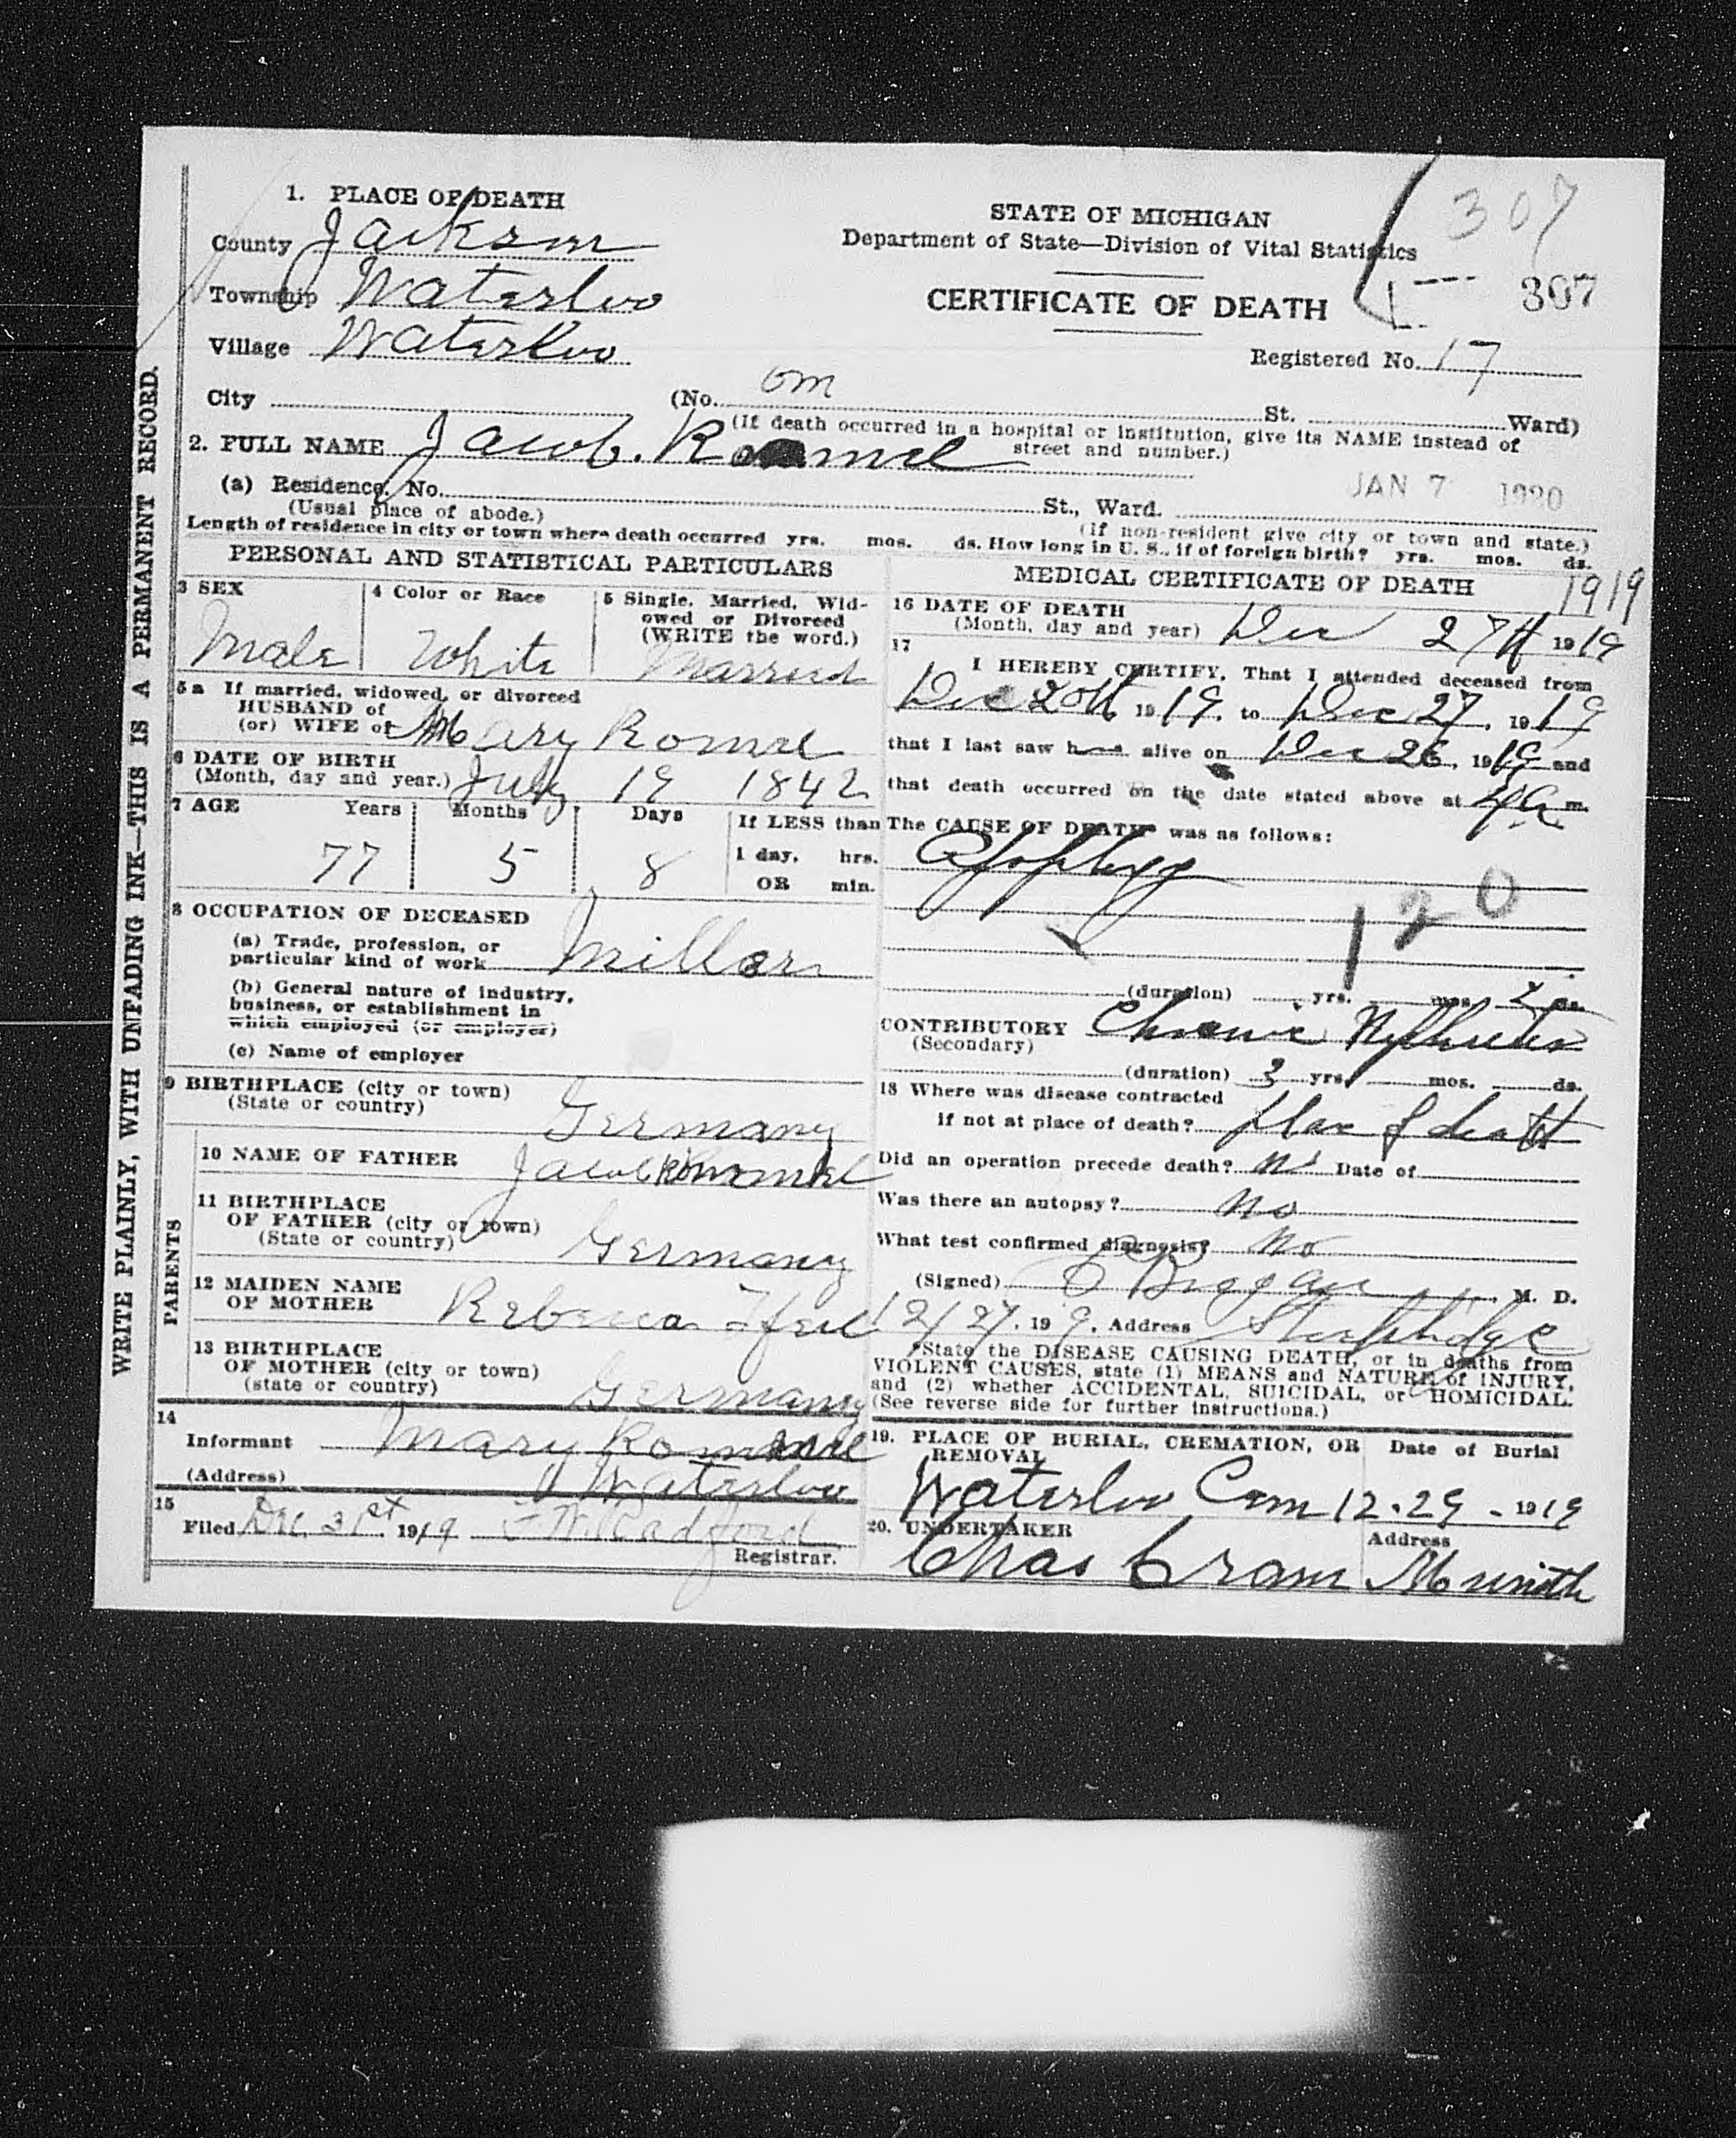 WRITE PLAINLY, WITH UNFADING INK—THIS IS A PERMANENT RECORD.
1. PLACE OF DEATH
County Jackson
Township Waterloo
Village Waterloo
City (No. St. Ward)
(If death occurred in a hospital or institution, give its NAME instead of street and number.)
STATE OF MICHIGAN
Department of State—Division of Vital Statistics
CERTIFICATE OF DEATH
307
307
Registered No. 17
2. FULL NAME Jacob.
(a) Residence. No. St., Ward.
(Usual place of abode.) (If non-resident give city or town and state.)
JAN 7 1920
Length of residence in city or town where death occurred yrs. mos. ds. How long in U. S., if of foreign birth? yrs. mos. ds.
PERSONAL AND STATISTICAL PARTICULARS
3 SEX
Male
4 Color or Race
White
5 Single, Married, Widowed or Divorced
(WRITE the word.)
Married
5a If married, widowed, or divorced
HUSBAND of
(or) WIFE of Mary Romel
6 DATE OF BIRTH
(Month, day and year.) July 19 1842
7 AGE Years Months Days If LESS than
77 5 8 1 day, hrs.
OR min.
8 OCCUPATION OF DECEASED
(a) Trade, profession, or
particular kind of work Miller
(b) General nature of industry,
business, or establishment in
which employed (or employer)
(c) Name of employer
9 BIRTHPLACE (city or town)
(State or country) Germany
PARENTS
10 NAME OF FATHER Jacob
11 BIRTHPLACE
OF FATHER (city or town)
(State or country) Germany
12 MAIDEN NAME
OF MOTHER Rebecca
13 BIRTHPLACE
OF MOTHER (city or town)
(state or country) Germany
14
Informant Mary
(Address) Waterloo
15
Filed Dec. 31st 1919 Radford
Registrar.
MEDICAL CERTIFICATE OF DEATH
1919
16 DATE OF DEATH
(Month, day and year) Dec 27th 1919
17
I HEREBY CERTIFY, That I attended deceased from
Dec 20th, 1919, to Dec 27, 1919
that I last saw h alive on Dec 26, 1919 and
that death occurred on the date stated above at 4 a m.
The CAUSE OF DEATH* was as follows:
Apoplexy
120
(duration) yrs. mos. 2 ds.
CONTRIBUTORY Chronic Nephritis
(Secondary)
(duration) 3 yrs. mos. ds.
18 Where was disease contracted
if not at place of death? place of death
Did an operation precede death? no Date of
Was there an autopsy? no
What test confirmed diagnosis? no
(Signed) M. D.
12/27, 19 9, Address Stockbridge
*State the DISEASE CAUSING DEATH, or in deaths from
VIOLENT CAUSES, state (1) MEANS and NATURE of INJURY,
and (2) whether ACCIDENTAL, SUICIDAL, or HOMICIDAL.
(See reverse side for further instructions.)
19. PLACE OF BURIAL, CREMATION, OR REMOVAL Date of Burial
Waterloo Cem 12-29-1919
20. UNDERTAKER Address
Chas Cram Munith